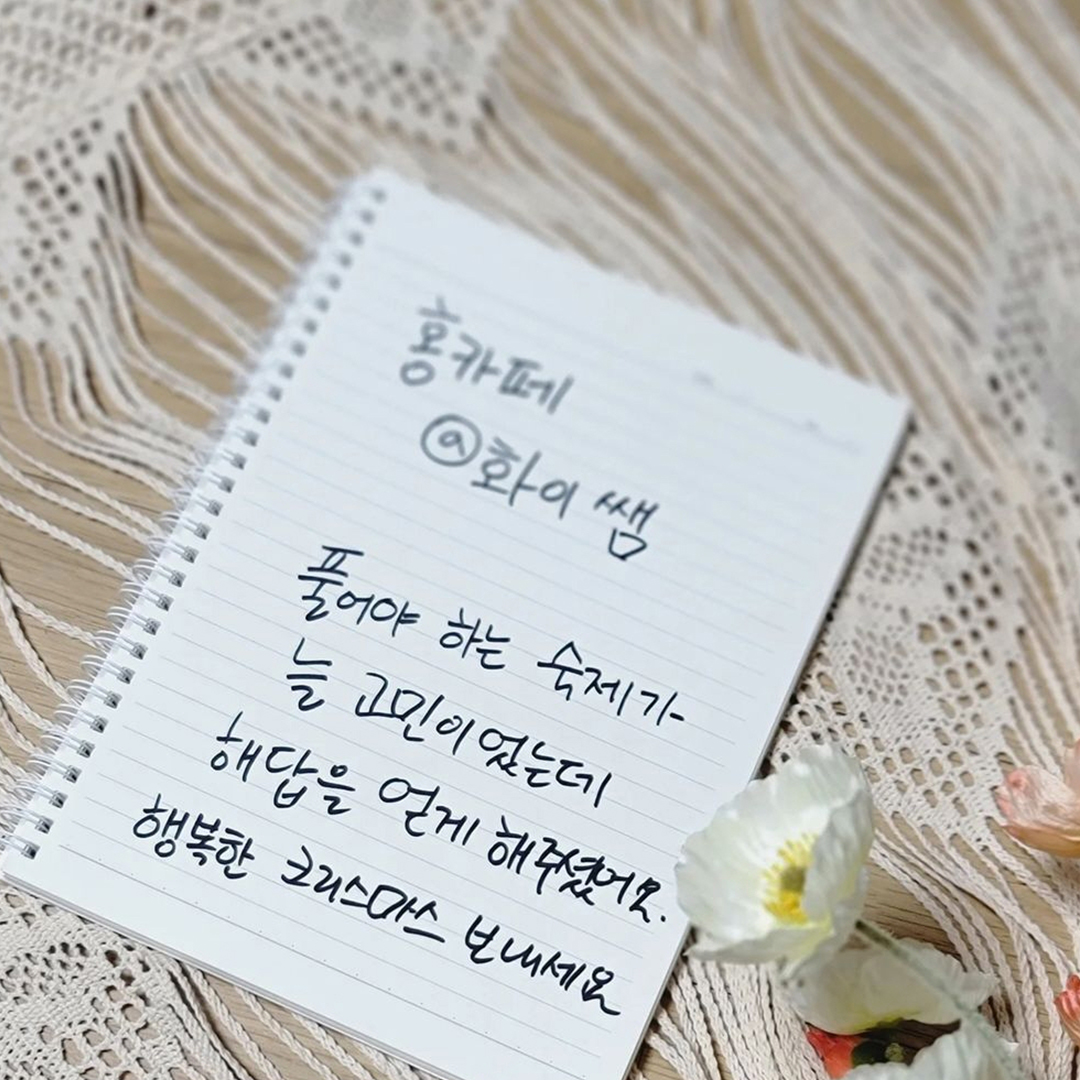 홍카페
@화이쌤
풀어야 하는 숙제가
늘 고민이었는데
해답을 얻게 해주셨어요.
행복한 크리스마스 보내세요